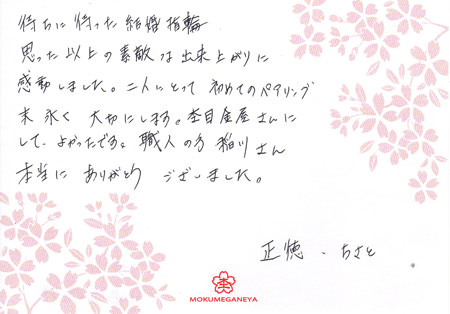 待ちに待った結婚指輪
思った以上の素敵な出来上がりに
感動しました。二人にとって初めてのペアリング
末永く大切にします。杢目金屋さんに
して、よかったです。職人の方 稲川さん
本当に ありがとう ございました。
正徳・ちさと
MOKUMEGANEYA